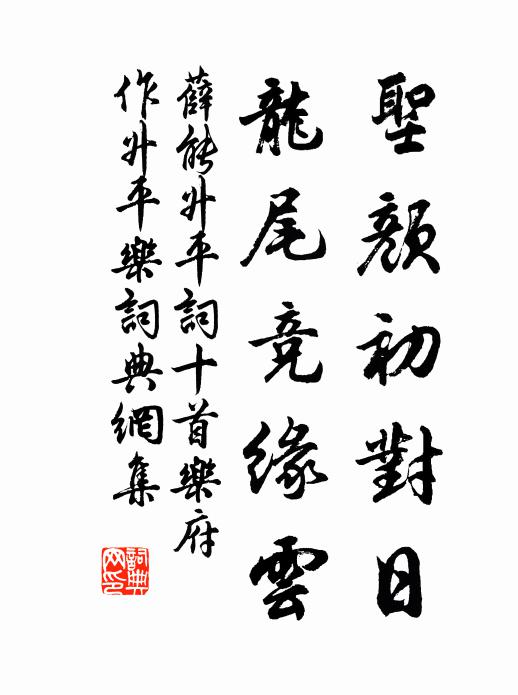 聖顏初對日
龍尾竞緣雲
薛能升平詞十首樂府
作升平樂詞典網集
詞典
网印